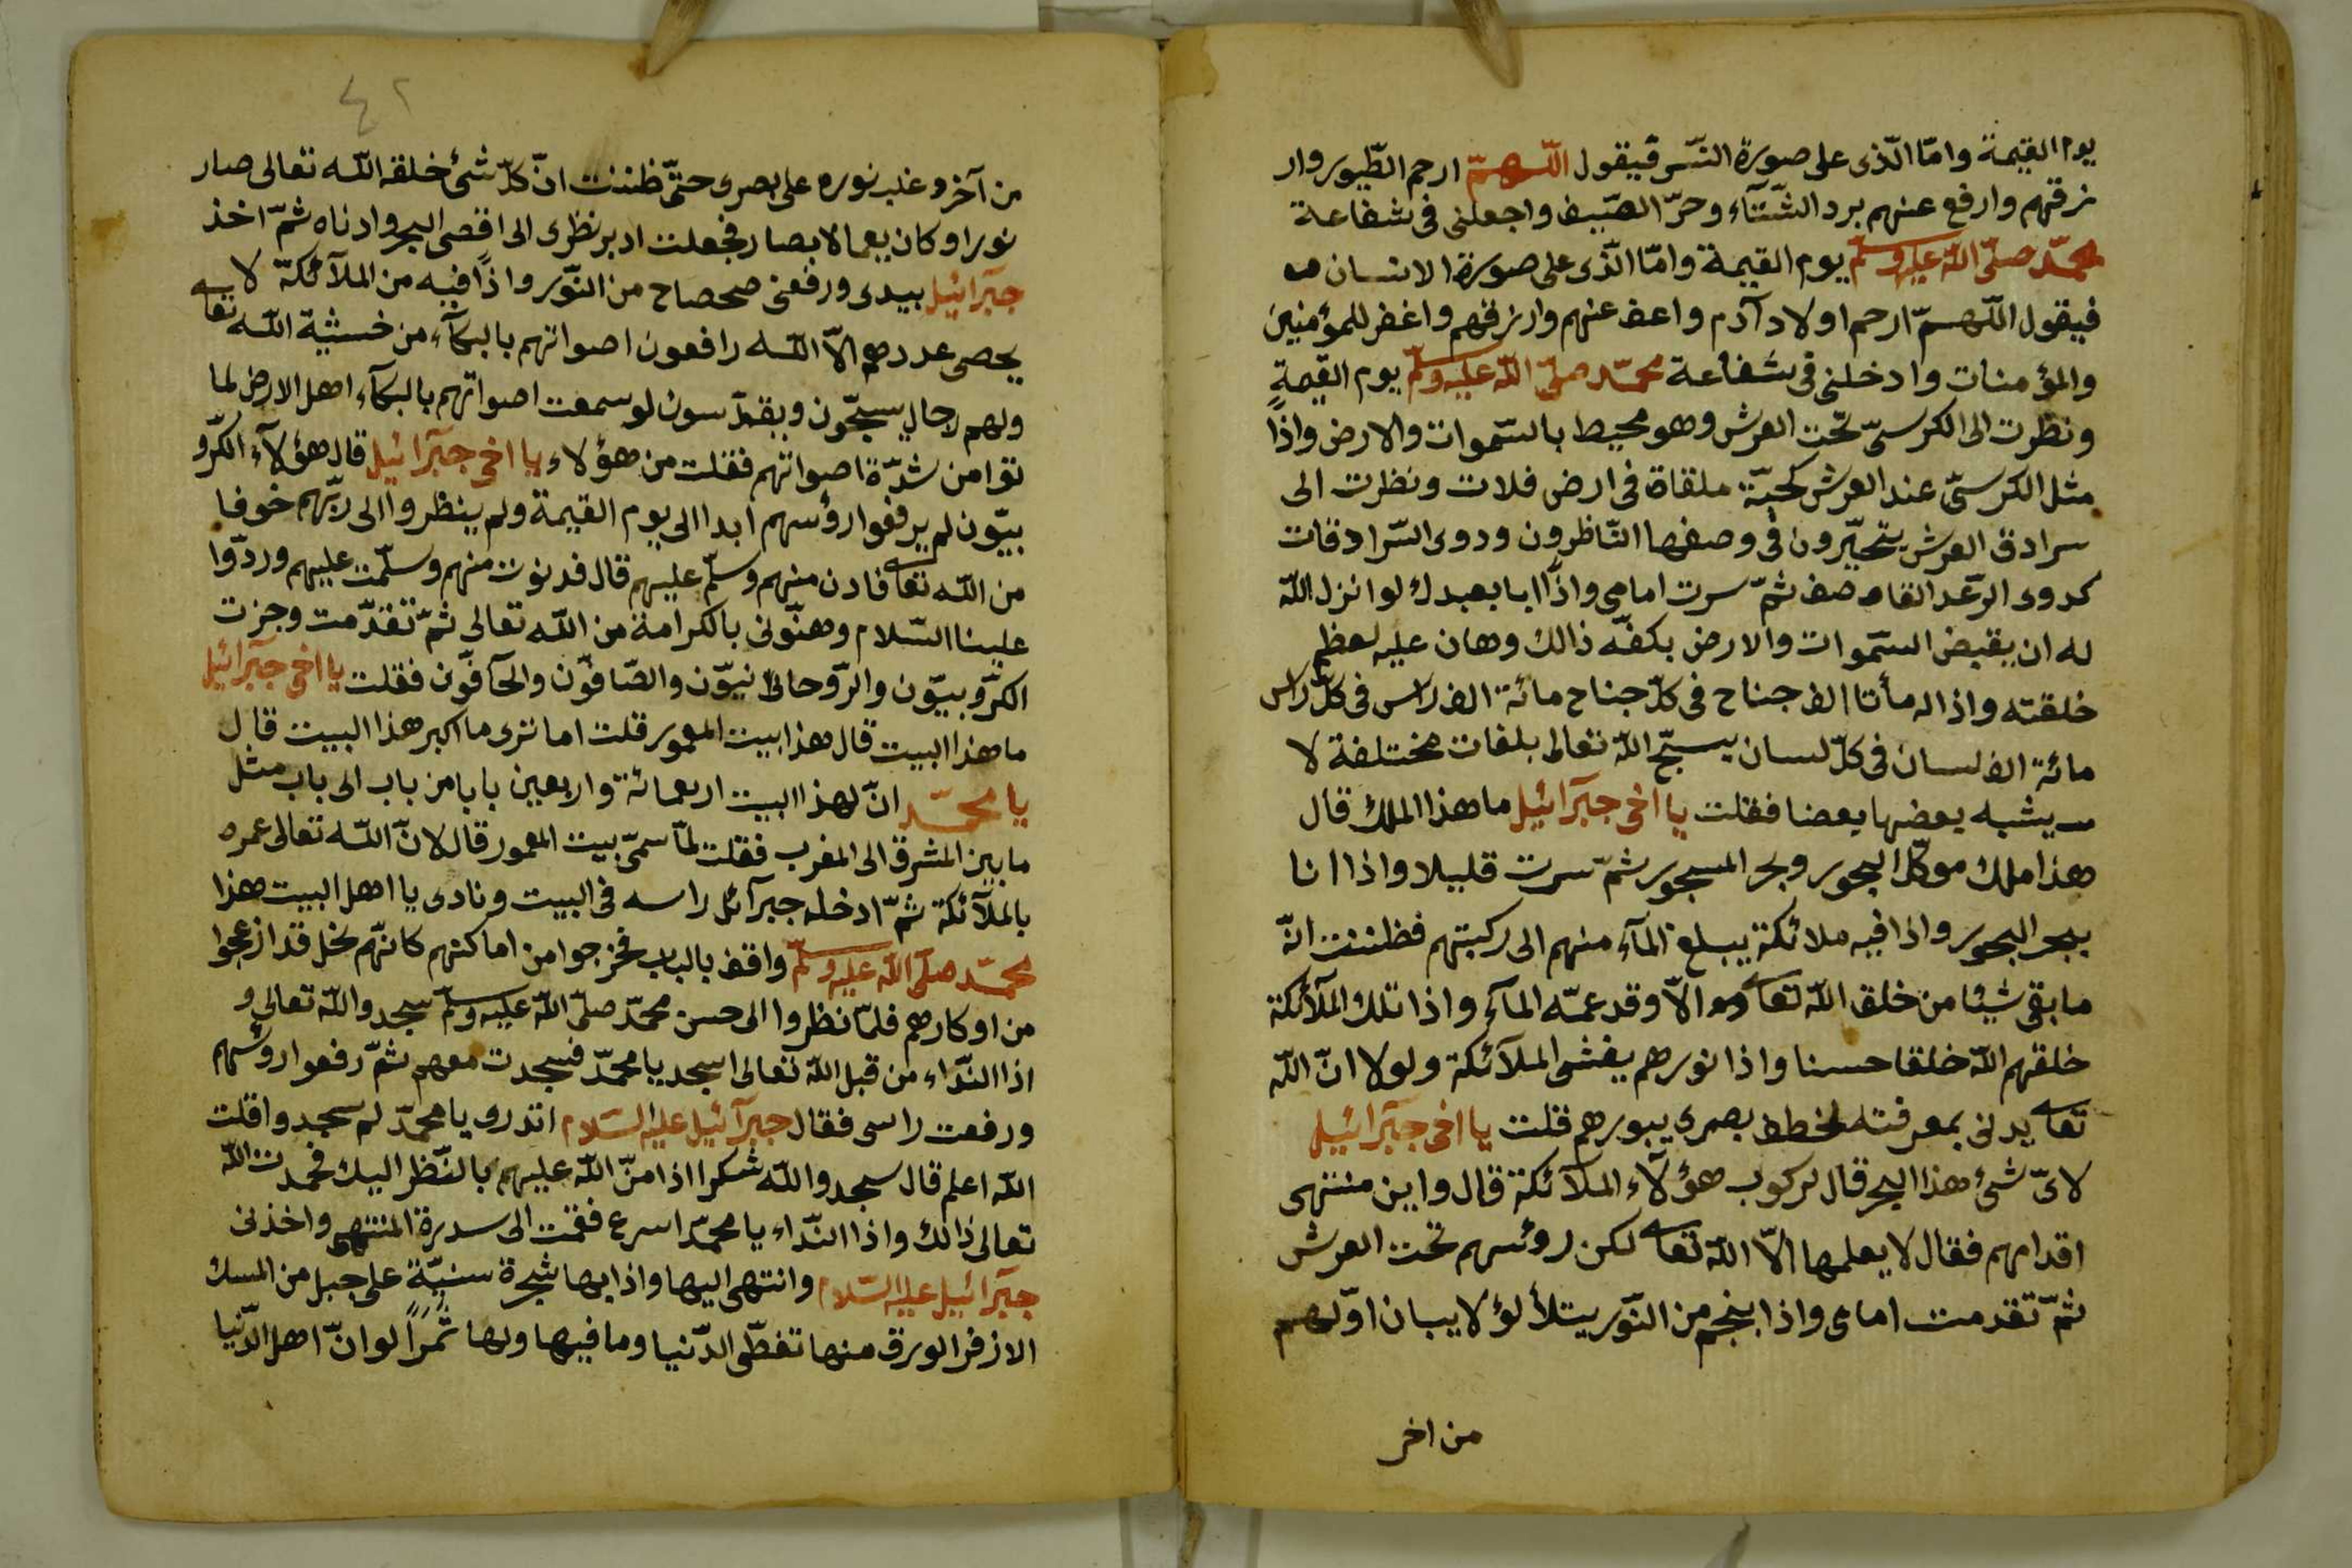 يوم القيمة وامّا الّذى على صورة النّسر فيقول اللّهمّ ارحم الطّيور وار
زقهم وارفع عنهم برد الشّتآء وحرّ الصّيف واجعلنى فى شفاعة
محمّد صلّى اللّه عليه وسلّم يوم القيمة وامّا الّذى على صورة الانسان
فيقول اللّهمّ ارحم اولاد آدم واعف عنهم وارزقهم واغفر للمؤمنين
والمؤمنات وادخلنى فى شفاعة محمّد صلّى اللّه عليه وسلّم يوم القيمة
ونظرت الى الكرسىّ تحت العرش وهو محيط بالسّموات والارض واذًا
مثل الكرسىّ عند العرش كحبّة ملقاة فى ارض فلات ونظرت الى
سرادق العرش يتحيّرون فى وصفها النّاظرون ودوى السّرادقات
كدوى الرّعد القاصف ثمّ سرت امامى واذًا ابا بعبدك لو انزل اللّه
له ان يقبض السّموات والارض بكفّه ذالك وهان عليه لعظم
خلقته واذا له مأتا الف جناح فى كلّ جناح مائة الف راس فى كلّ راس
مائة الف لسان فى كلّ لسان يسبّح اللّه تعالى بلغات مختلفة لا
يشبه بعضها بعضا فقلت يا اخى جبرآئيل ما هذا الملك قال
هذا ملك موكّل البحور وبحر المسجور ثمّ سرت قليلا واذا انا
ببحر البحور واذا فيه ملائكة يبلغ المآء منهم الى ركبتهم فظننت انّه
ما بقى شيئا من خلق اللّه تعالى الاّ وقد عمّه المآء واذا تلك الملآئكة
خلقهم اللّه خلقا حسنا واذا نورهم يغشى الملآئكة ولولا انّ اللّه
تعالى يدنى بمعرفته لخطف بصرى ببورهم قلت يا اخى جبرآئيل
لاىّ شئ هذا البحر قال لركوب هؤلآء الملآئكة قال واين منتهى
اقدامهم فقال لا يعلمها الاّ اللّه تعالى لكن روئسهم تحت العرش
ثمّ تقدمت امامى واذا بنجم من النّور يتلألؤ لا يبان اوّلهم
من اخر
٤٢
من آخر وغلب نوره على بصرى حتّى ظننت انّ كلّ شئ خلقه اللّه تعالى صار
نورا وكان يعما الابصار فجعلت ادبر نظرى الى اقصى البحر وادناه ثمّ اخذ
جبرآئيل بيدى ورفعنى صحصاح من النّور واذًا فيه من الملآئكة لا
يحصى عددهم الاّ اللّه رافعون اصواتهم بالبكآء من خشية اللّه تعالى
ولهم رجال يسبّحون ويقدّسون لو سمعت اصواتهم بالبكآء اهل الارض لما
توا من شدّة اصواتهم فقلت من هؤلاء يا اخى جبرآئيل قال هؤلآء الكرّو
بيّون لم يرفعوا رؤسهم ابدا الى يوم القيمة ولم ينظروا الى ربّهم خوفا
من اللّه تعالى فادن منهم وسلّم عليهم قال فدنوت منهم وسلّمت عليهم وردّوا
علينا السّلام وهنّونى بالكرامة من اللّه تعالى ثمّ تقدّمت وجزت
الكرّوبيّون والرّوحانيّون والصّافّون والحآفّون فقلت يا اخى جبرآئيل
ما هذا البيت قال هذا بيت المعمور قلت اما ترى ما اكبر هذا البيت قال
يا محمّد انّ لهذا البيت اربعمائة واربعين بابا من باب الى باب مثل
ما بين المشرق الى المغرب فقلت لمّا سمّى بيت المعمور قال لانّ اللّه تعالى عمره
بالملآئكة ثمّ ادخله جبرآئل راسه فى البيت ونادى يا اهل البيت هذا
محمّد صلّى اللّه عليه وسلّم واقف بالباب فخرجوا من اماكنهم كانّهم نحل قد ازعجوا
من اوكارهم فلمّا نظروا الى حسن محمّد صلّى اللّه عليه وسلّم سجدوا للّه تعالى و
اذا النّداء من قبل اللّه تعالى اسجد يا محمّد فسجدت معهم ثمّ رفعوا روئسهم
ورفعت راسى فقال جبرآئيل عليه السّلام اتدرى يا محمّد لم سجدوا قلت
اللّه اعلم قال سجدوا للّه شكرا اذا منّ اللّه عليهم بالنّظر اليك فحمدت اللّه
تعالى ذالك واذا النّداء يا محمّد اسرع فقمت الى سدرة المنتهى واخذنى
جبرآئيل عليه السّلام وانتهى اليها واذا بها شجرة سنيّة على جبل من المسك
الازفر الورق منها تغطّى الدّنيا وما فيها ولها ثمرًا لو انّ اهل الدّنيا